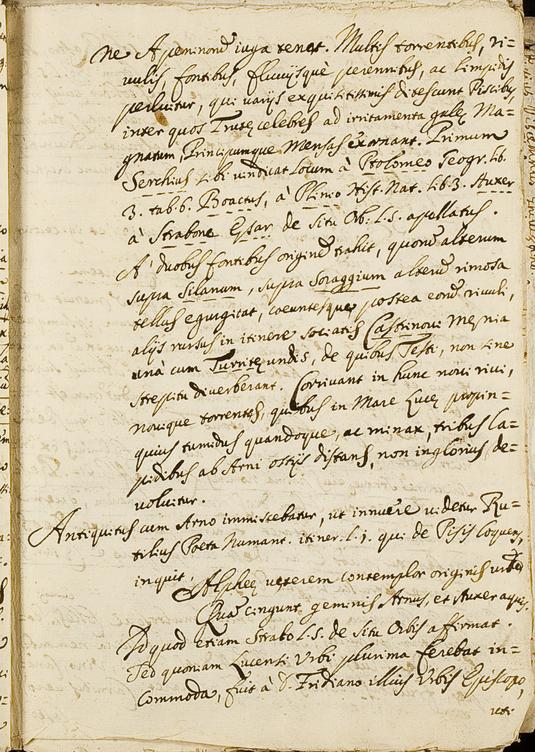 ne Apeninorũ iuga tenet. Multis torrentibus, ri-
vulis, fontibus, fluvijsquè perennibus, ac limpidis
perluitur, qui varijs exquisitissimis ditescunt Piscibus,
inter quos Trutę celebres ad irritamenta gulę Ma-
gnatum, Principumque Mensas exornant. Primum
Serchius sibi vindicat locum à Ptolomeo Geogr. lib.
3. tab. 6. Boactus, à Plinio Hist. Nat. lib. 3. Auxer
à Strabone Esar de Situ Orb. l. 5. apellatus.
A' duobus fontibus originẽ trahit, quorũ alterum
supra Silanum, supra Soraggium alterũ rimosa
tellus egurgitat, coeuntesque postea eorũ rivuli,
alijs rursus in itinere sociatis Castrinovi Męnia
una cum Turritę undis, de quibus Testi, non sine
strepitu diverberant. Corrivant in hunc novi rivi,
novique torrentes, quibus in Mare Lucę propin-
quius tumidus quandoque, ac minax, tribus la-
pidibus ab Arni ostijs distans, non inglorius de-
volvitur.
Antiquitus cum Arno immiscebatur, ut innuere videtur Ru-
tilius Poeta Numant. itiner. l. 1. qui de Pisis loquens,
inquit. Alpheę veterem contemplor originis urbẽ
Quam cingunt geminis Arnus, et Auxer aquis.
Id quod etiam Strabo l. 5. de Situ Orbis affirmat.
Sed quoniam Lucensi Urbi plurima ferebat in-
commoda, fuit à S. Fridiano illius Urbis Episcopo,